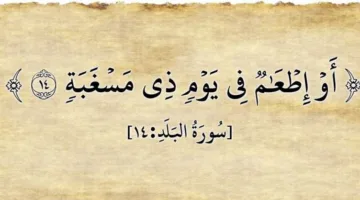 ﴿ أَوْ إِطْعَٰمٌ فِى يَوْمٍ ذِى مَسْغَبَةٍ ١٤ ﴾
[سُورَةُ البَلَدِ:١٤]